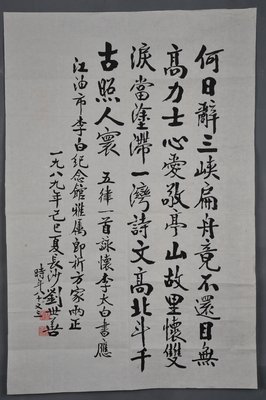 何日辭三峽扁舟竟不還目無
高力士心愛敬亭山故里懷雙
淚當塗滯一灣詩文高北斗千
古照人寰 五律一首詠懷李太白書應
江油市李白纪念館雅属即祈方家兩正
一九八九年己巳夏長沙劉世善
時年八十又三